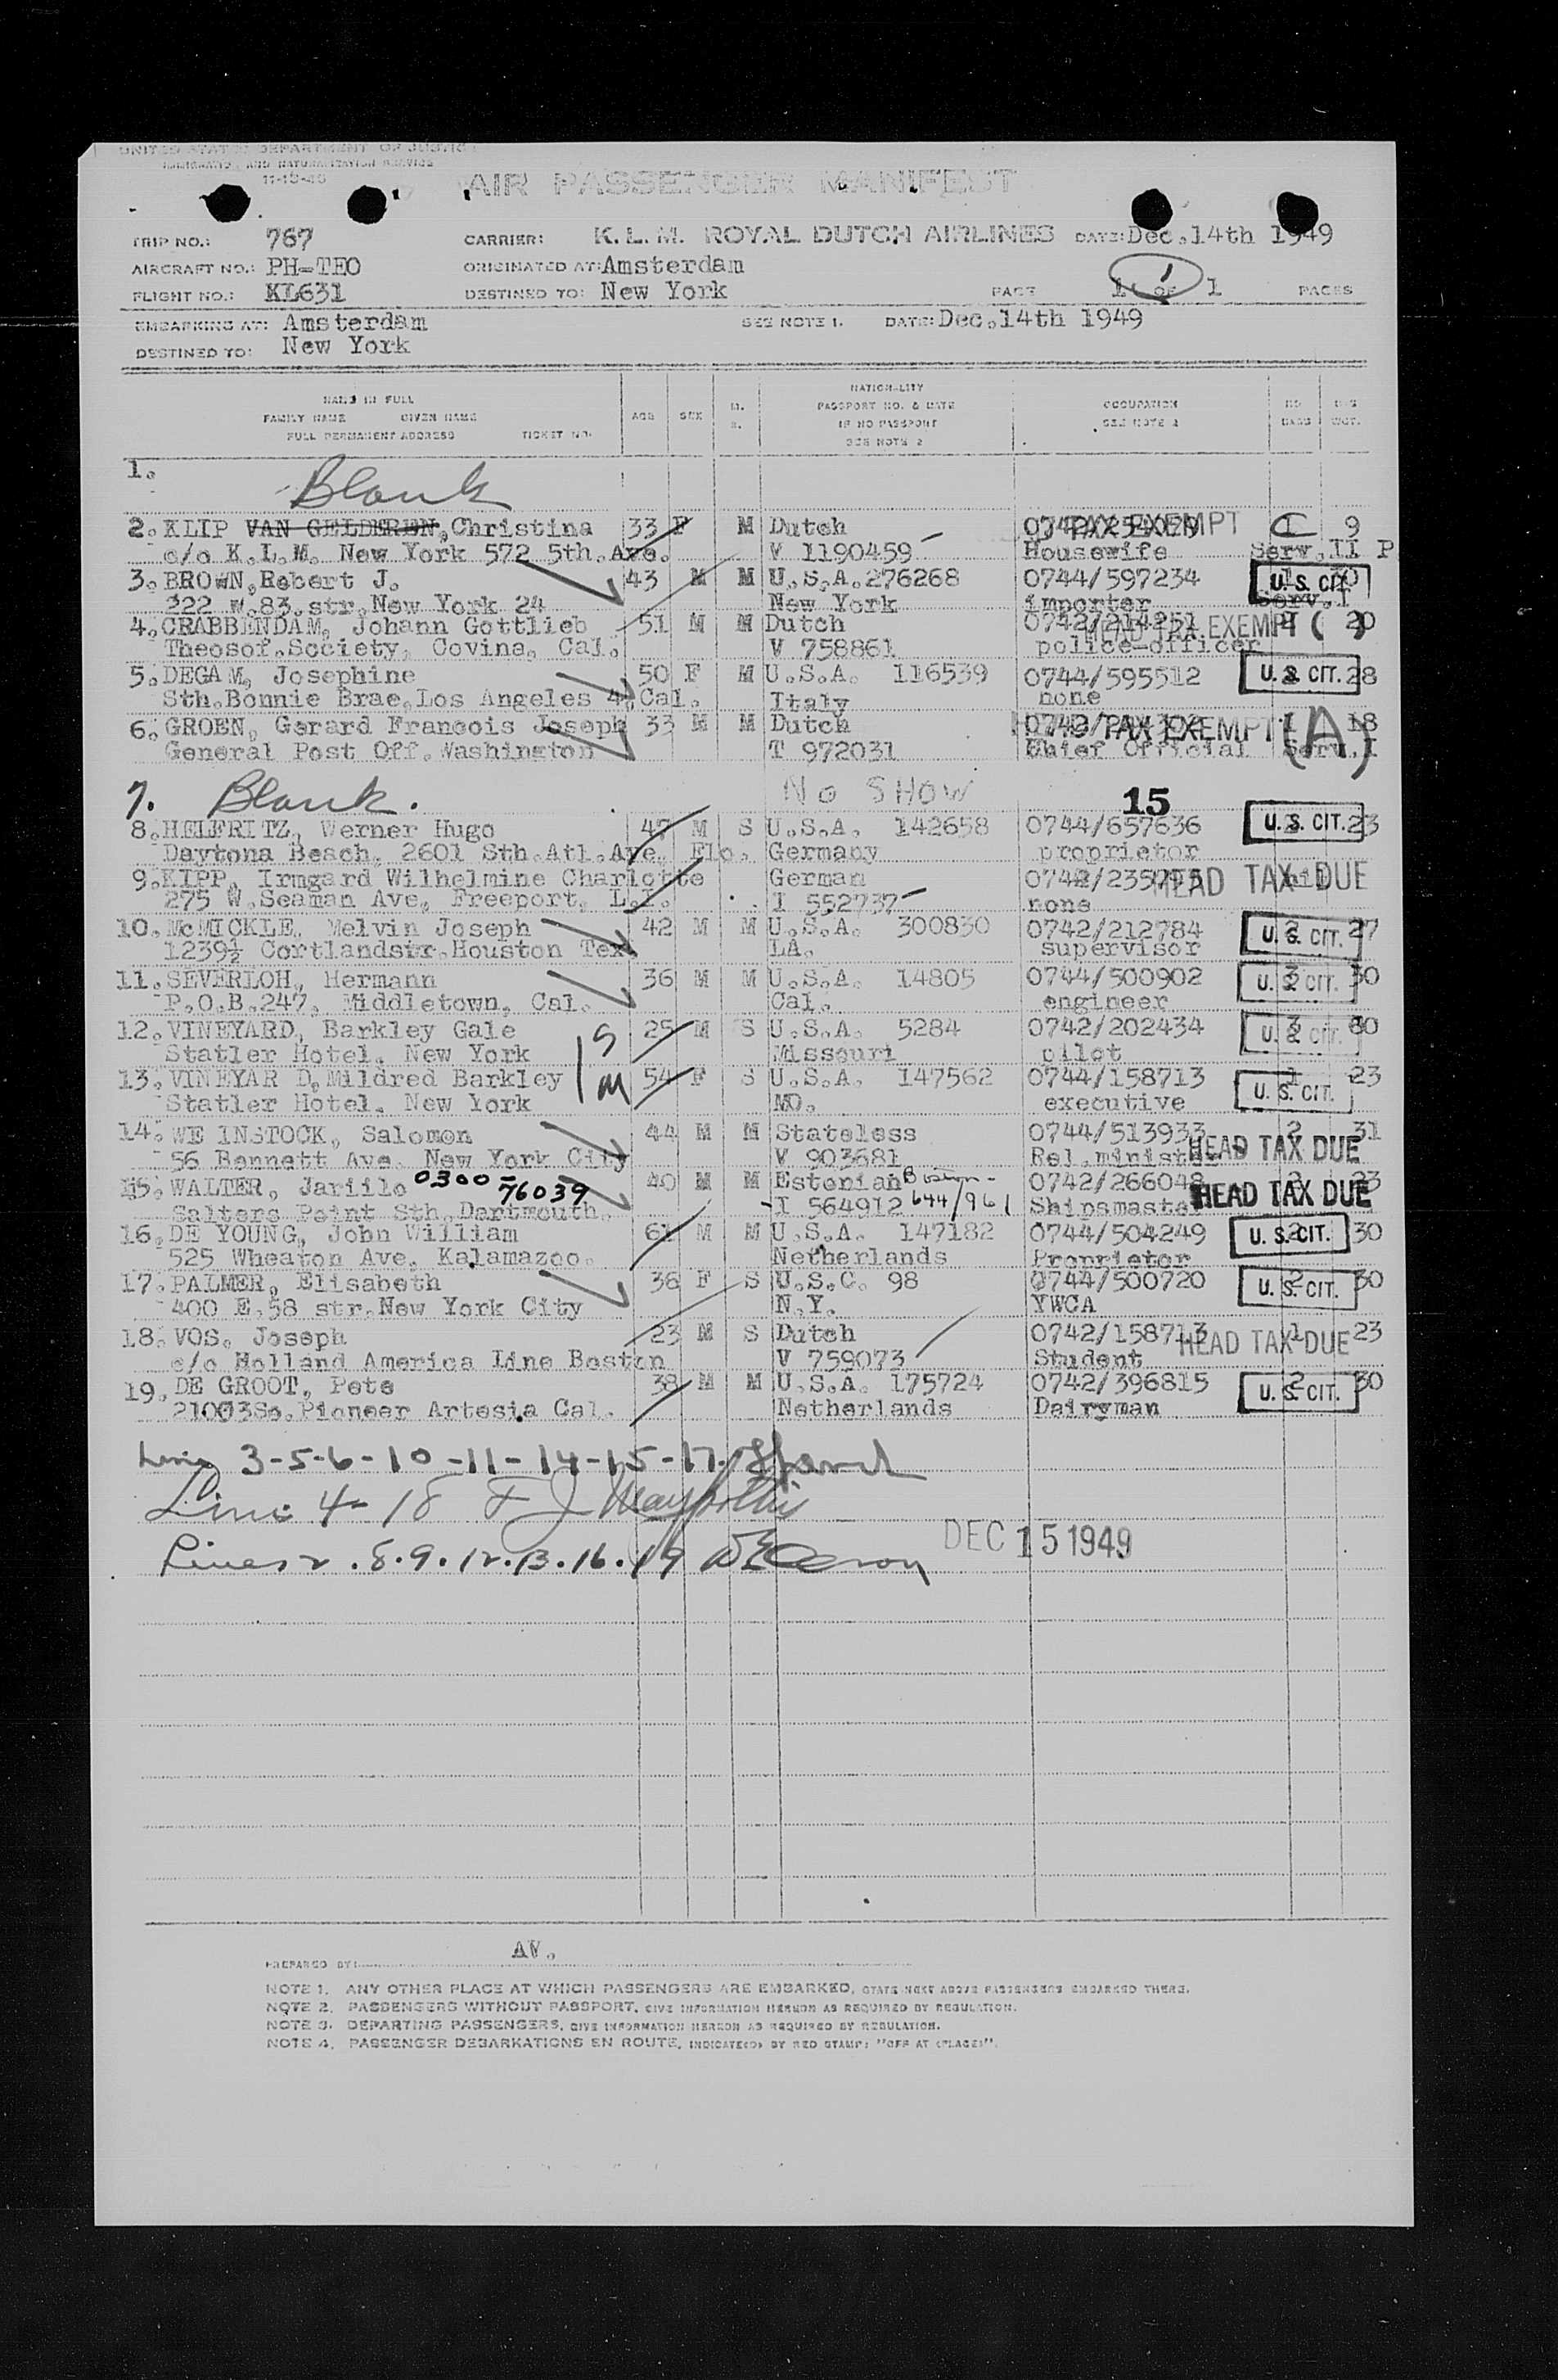 UNITED STATES DEPARTMENT OF JUSTICE
IMMIGRATION AND NATURALIZATION SERVICE
11-18-46
AIR PASSENGER MANIFEST
TRIP NO.: 767 CARRIER: K. L. M. ROYAL DUTCH AIRLINES DATE: Dec.14th 1949
AIRCRAFT NO.: PH-TEO ORIGINATED AT: Amsterdam
FLIGHT NO.: KL631 DESTINED TO: New York PAGE 1 OF 1 PAGES
EMBARKING AT: Amsterdam SEE NOTE 1. DATE: Dec.14th 1949
DESTINED TO: New York
NAME IN FULL
FAMILY NAME GIVEN NAME
FULL PERMANENT ADDRESS TICKET NO.
AGE SEX M. S.
NATIONALITY
PASSPORT NO. & DATE
IF NO PASSPORT
SEE NOTE 2
OCCUPATION
SEE NOTE 2
NO BAGS
WGT.
1.
Blank
2. KLIP VAN GELDEREN, Christina 33 F M Dutch TAX EXEMPT 1 9
c/o K.L.M. New York 572 5th. Ave. V 1190459 Housewife Serv.II P
3. BROWN, Robert J. 43 M M U.S.A. 276268 0744/597234 U. S. CIT.
322 W.83.str.New York 24 New York importer Serv.I
4. CRABBENDAM, Johann Gottlieb 51 M M Dutch 0742/214251 HEAD TAX EXEMPT ( ) 20
Theosof.Society, Covina, Cal. V 758861 police-officer
5. DEGAM, Josephine 50 F M U.S.A. 116539 0744/595512 U. S. CIT. 28
Sth.Bonnie Brae,Los Angeles 4, Cal. Italy none
6. GROEN, Gerard Francois Joseph 33 M M Dutch TAX EXEMPT (A) 18
General Post Off.Washington T 972031 Chief Official Serv.I
7. Blank. No SHOW 15
8. HELFRITZ, Werner Hugo 47 M S U.S.A. 142658 0744/657636 U. S. CIT. 23
Daytona Beach, 2601 Sth.Atl.Ave. Flo. Germany proprietor
9. KIPP, Irmgard Wilhelmine Charlotte German HEAD TAX DUE
275 W.Seaman Ave, Freeport, L.I. I 552737 none
10. McMICKLE, Melvin Joseph 42 M M U.S.A. 300830 0742/212784 U. S. CIT. 27
1239½ Cortlandstr.Houston Tex LA. supervisor
11. SEVERLOH, Hermann 36 M M U.S.A. 14805 0744/500902 3 U. S. CIT. 30
P.O.B.247, Middletown, Cal. Cal. engineer
12. VINEYARD, Barkley Gale S 25 M S U.S.A. 5284 0742/202434 U. S. CIT.
Statler Hotel. New York Missouri pilot
13. VINEYAR D,Mildred Barkley M 54 F S U.S.A. 147562 0744/158713 1 U. S. CIT. 23
Statler Hotel. New York MO. executive
14. WE INSTOCK, Salomon 44 M M Stateless 0744/513933 2 31
56 Bennett Ave. New York City V 903681 Rel.minister HEAD TAX DUE
15. WALTER, Jariilo 0300-76039 40 M M Estonian Boston- 0742/266048 23
Salters Point Sth.Dartmouth. I 564912 644/961 Shipsmaster HEAD TAX DUE
16. DE YOUNG, John William 61 M M U.S.A. 147182 0744/504249 2 U. S. CIT. 30
525 Wheaton Ave. Kalamazoo. Netherlands Proprietor
17. PALMER, Elisabeth 36 F S U.S.C. 98 0744/500720 2 U. S. CIT. 30
400 E.58 str.New York City N.Y. YWCA
18. VOS. Joseph 23 M S Dutch 0742/158713 1 HEAD TAX DUE 23
c/o Holland America Line Boston V 759073 Student
19. DE GROOT, Pete 38 M M U.S.A. 175724 0742/396815 2 U. S. CIT. 30
21003So.Pioneer Artesia Cal. Netherlands Dairyman
Line 3-5-6-10-11-14-15-17.
Line 4-18 F J
Lines 2.8.9.12.13.16.19 DEC 15 1949
PREPARED BY: AV.
NOTE 1. ANY OTHER PLACE AT WHICH PASSENGERS ARE EMBARKED, STATE NEXT ABOVE PASSENGERS EMBARKED THERE.
NOTE 2. PASSENGERS WITHOUT PASSPORT, GIVE INFORMATION HEREON AS REQUIRED BY REGULATION.
NOTE 3. DEPARTING PASSENGERS, GIVE INFORMATION HEREON AS REQUIRED BY REGULATION.
NOTE 4. PASSENGER DEBARKATIONS EN ROUTE, INDICATE(D) BY RED STAMP: "OFF AT (PLACE)".